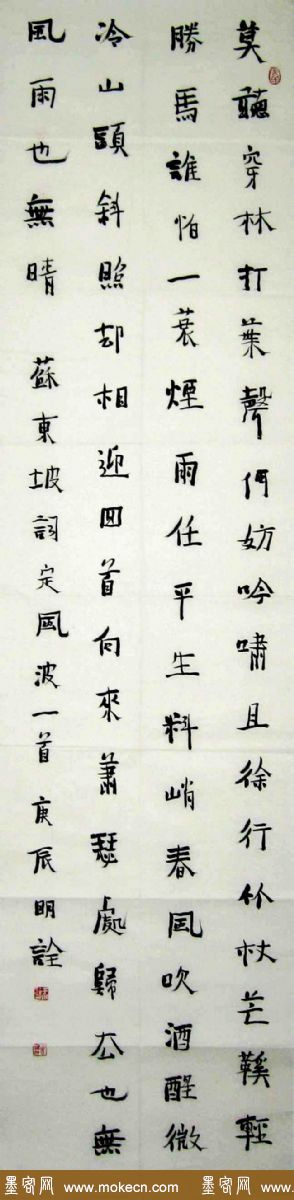 莫聽穿林打葉聲何妨吟嘯且徐行竹杖芒鞵輕
勝馬誰怕一蓑煙雨任平生料峭春風吹酒醒微
冷山頭斜照却相迎回首向來蕭瑟處歸去也無
風雨也無晴 蘇東坡詞定風波一首 庚辰明詮
墨客网 www.mokecn.com 墨客网